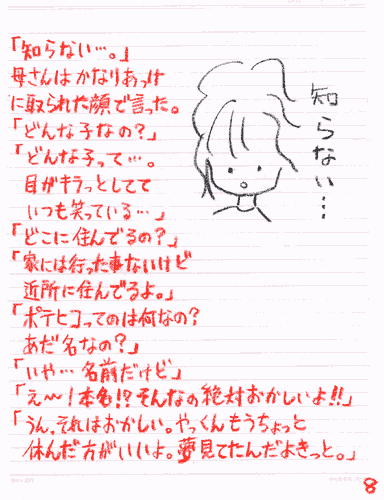 「知らない…。」
母さんはかなりあっけ
に取られた顔で言った。
「どんな子なの?」
「どんな子って…。
目がキラっとしてて
いつも笑っている…」
「どこに住んでるの?」
「家には行った事ないけど
近所に住んでるよ。」
「ポテヒコってのは何なの?
あだ名なの?」
「いや…名前だけど」
「え〜!本名!?そんなの絶対おかしいよ!!」
「うん、それはおかしい。やっくんもうちょっと
休んだ方がいいよ。夢見てたんだよきっと。」
知らない…
8